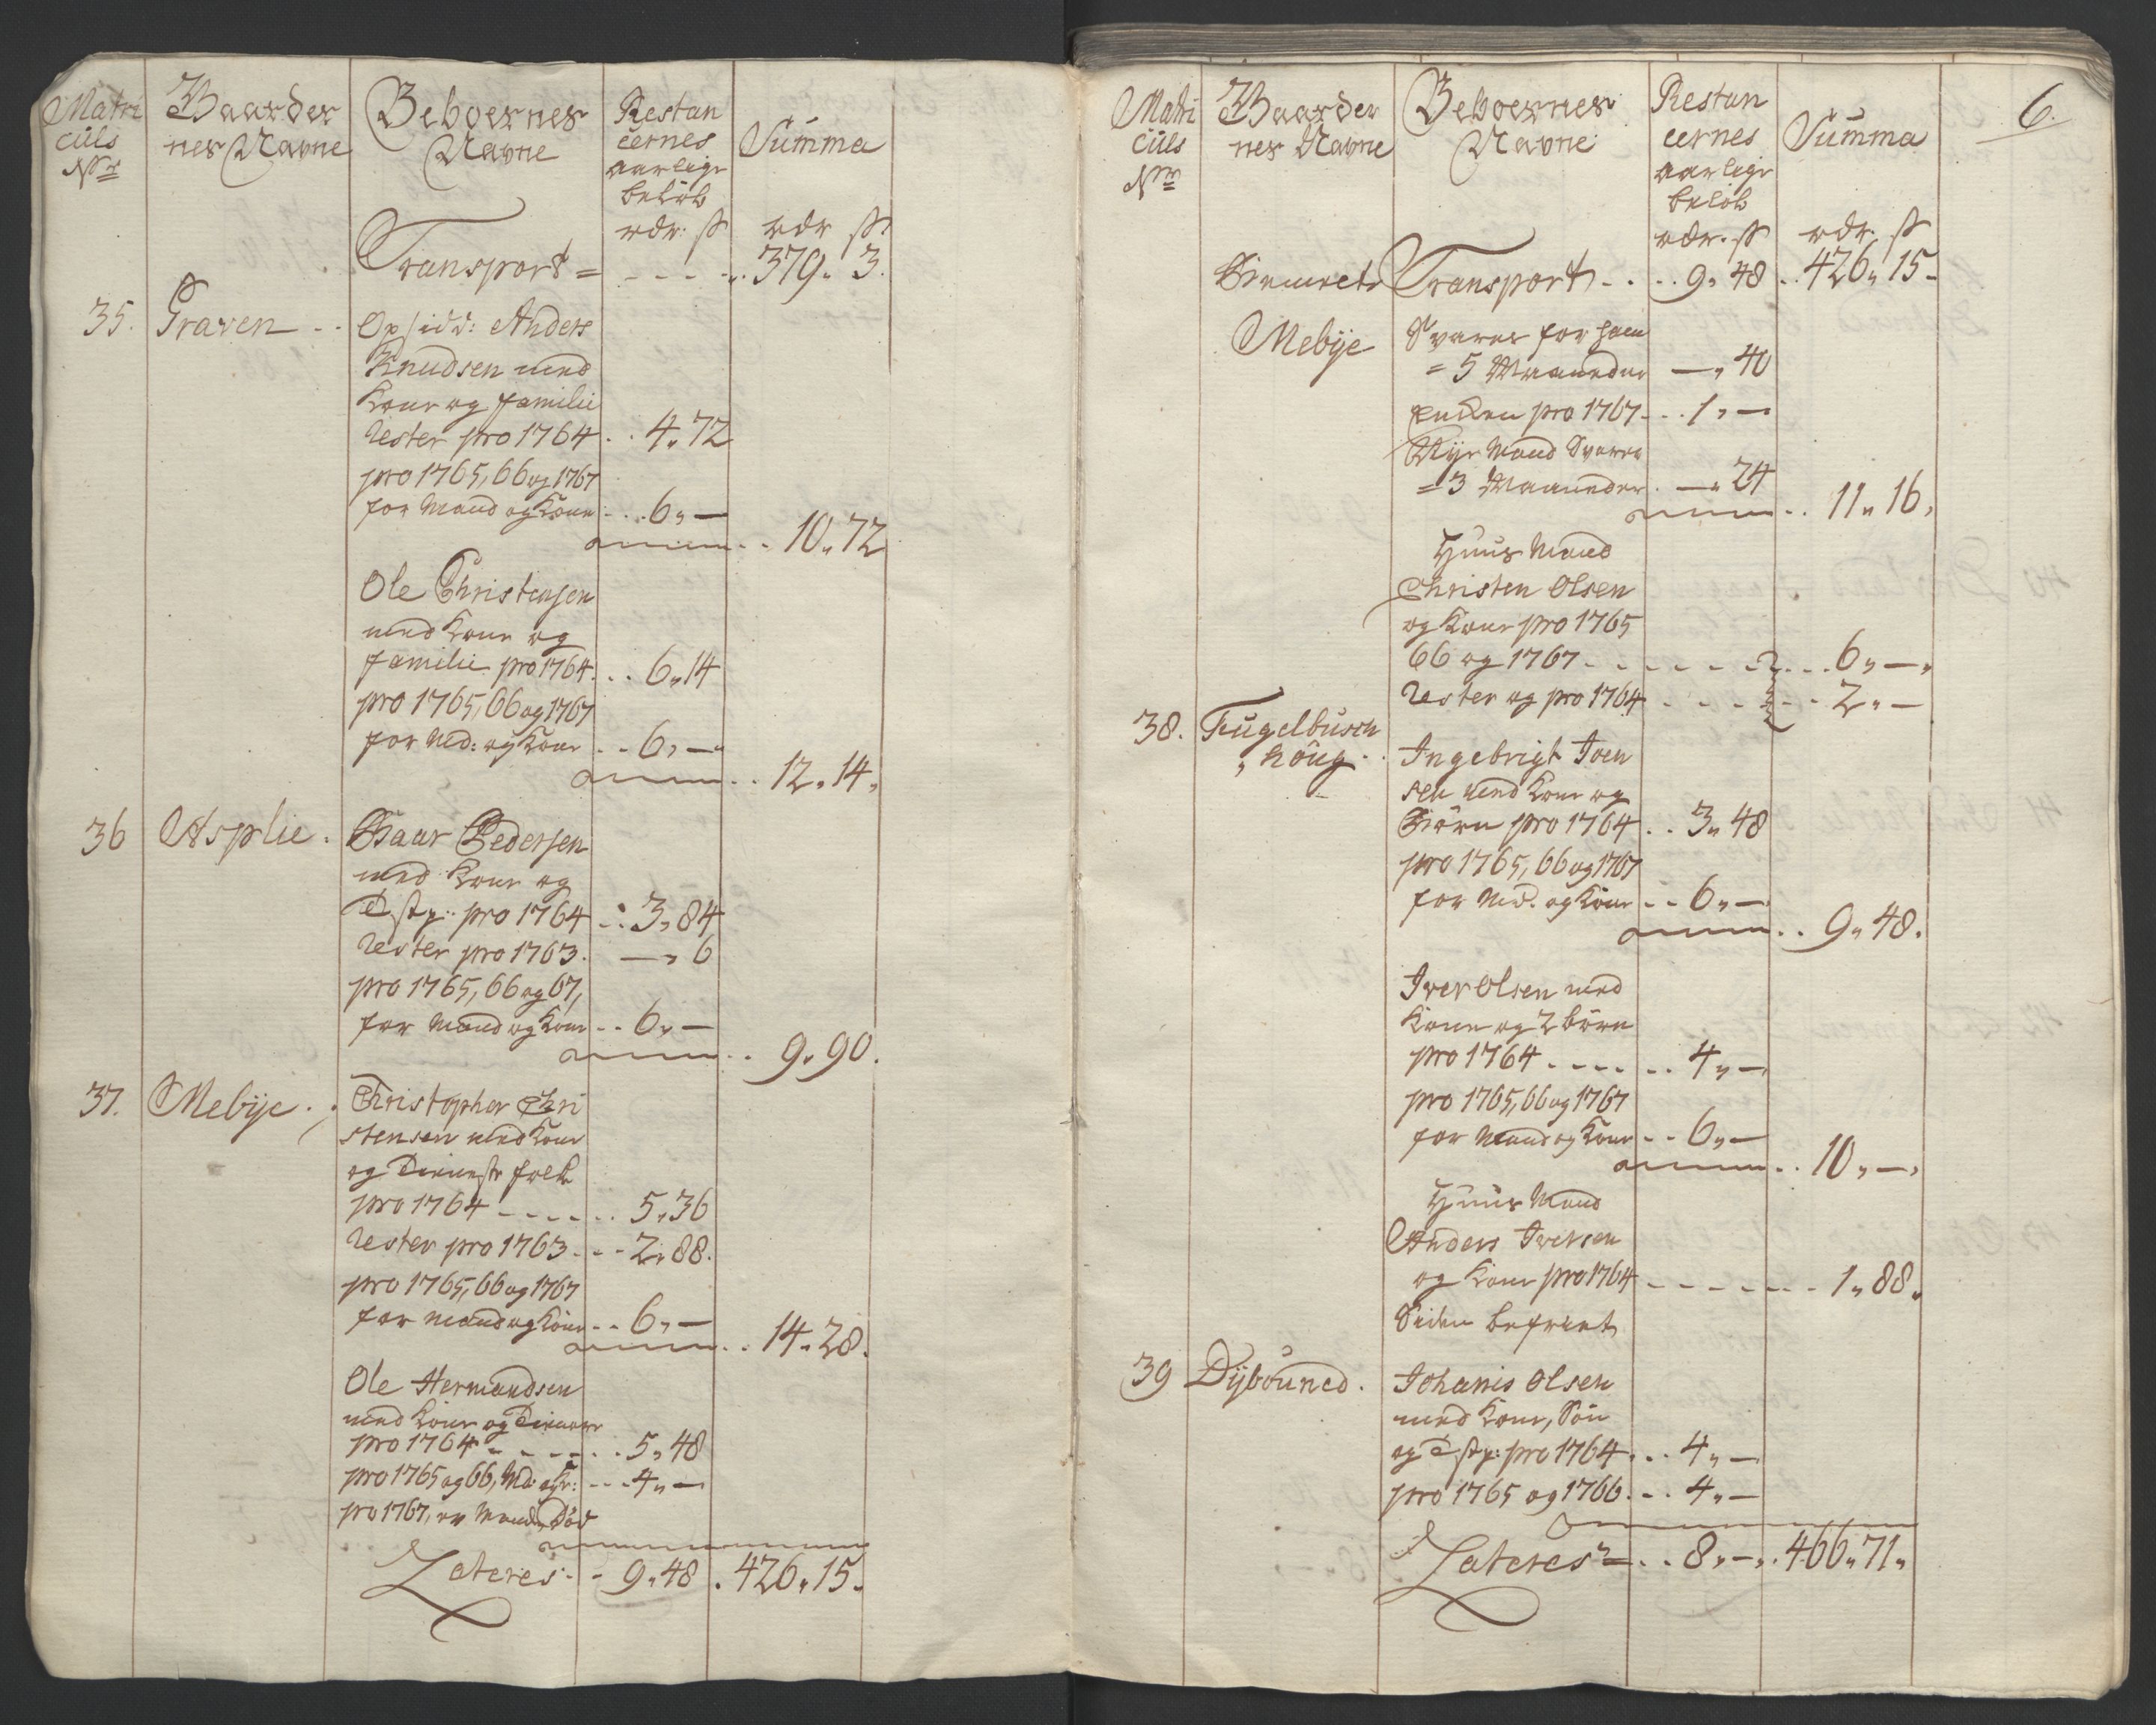 Matri
culs
Nr
Gaarder
nes Navne
Beboernes
Navne
Restan
cernes
aarlige
beløb
Summa
rdr: ß rdr ß
Transport = - - - 379 „ 3.
35. Graven - - Opsidd: Anders
Knudsen med
Kone og familie
Rester pro 1764 . . 4 „ 72
pro 1765, 66 og 1767
for Mand og Kone . . 6 „ —
10 „ 72
Ole Christensen
med Kone og
familie pro 1764 . . 6 „ 14
pro 1765, 66 og 1767
for Md: og Kone . . 6 „ —
12 „ 14 „
36 Asplie . Baar Pedersen
med Kone og
Tstp: pro 1764 . . 3 „ 84
Rester pro 1763 . — „ 6
pro 1765, 66 og 67,
for Mand og Kone . . 6 „ —
9 „ 90.
37. Mebÿe . . Christopher Chri
stensen med Kone
og Tieneste folk
pro 1764 - - - - . . 5 „ 36
Rester pro 1763 . - - 2 „ 88.
pro 1765, 66 og 1767
for Mand og Kone . . 6 „ —
14 „ 28.
Ole Hermandsen
med Kone og Tienere
pro 1764 - - - - . . 5 „ 48
pro 1765 og 66, Md: og K: - - - 4 „ —
pro 1767, er Manden Død
Lateres - - 9 „ 48 . 426 „ 15.
6.
Matri
culs
Nr
Gaarder
nes Navne
Beboernes
Navne
Restan
cernes
aarlige
beløb
Summa
rdr. ß rdr. ß
Transport - . . . 9 „ 48 . . 426 „ 15 -
Mebÿe Svarer for ham
= 5 Maaneder — „ 40
Enken pro 1767 - . . 1 „ —
Nye Mand Svarer
= 3 Maaneder . — „ 24
11 „ 16 „
Huus Mand
Christen Olsen
og Kone pro 1765
66 og 1767 - - - - - - - 6 „ — „
Rester og pro 1764 - - - - - 2 „ —
38. Fugelbusch
„ houg . . Ingebrigt Joen
sen med Kone og
Børn pro 1764 . . 3 „ 48
pro 1765, 66 og 1767
for Md. og Kone - - 6 „ —
9 „ 48.
Iver Olsen med
Kone og 2 børn
pro 1764 . - - - . . 4 „ —
pro 1765, 66 og 1767
for Mand og Kone - - 6 „ —
10 „ — „
Huus Mand
Anders Iversen
og Kone pro 1764 - - - - - - 1 „ 88 „
Siden befriet
39 Dÿbouned . Johanis Olsen
med Kone, Søn
og Tstp: pro 1764 . . . 4 „ —
pro 1765 og 1766 . - - 4 „ —
Lateres = . . 8 „ — „ . 466 „ 71 „